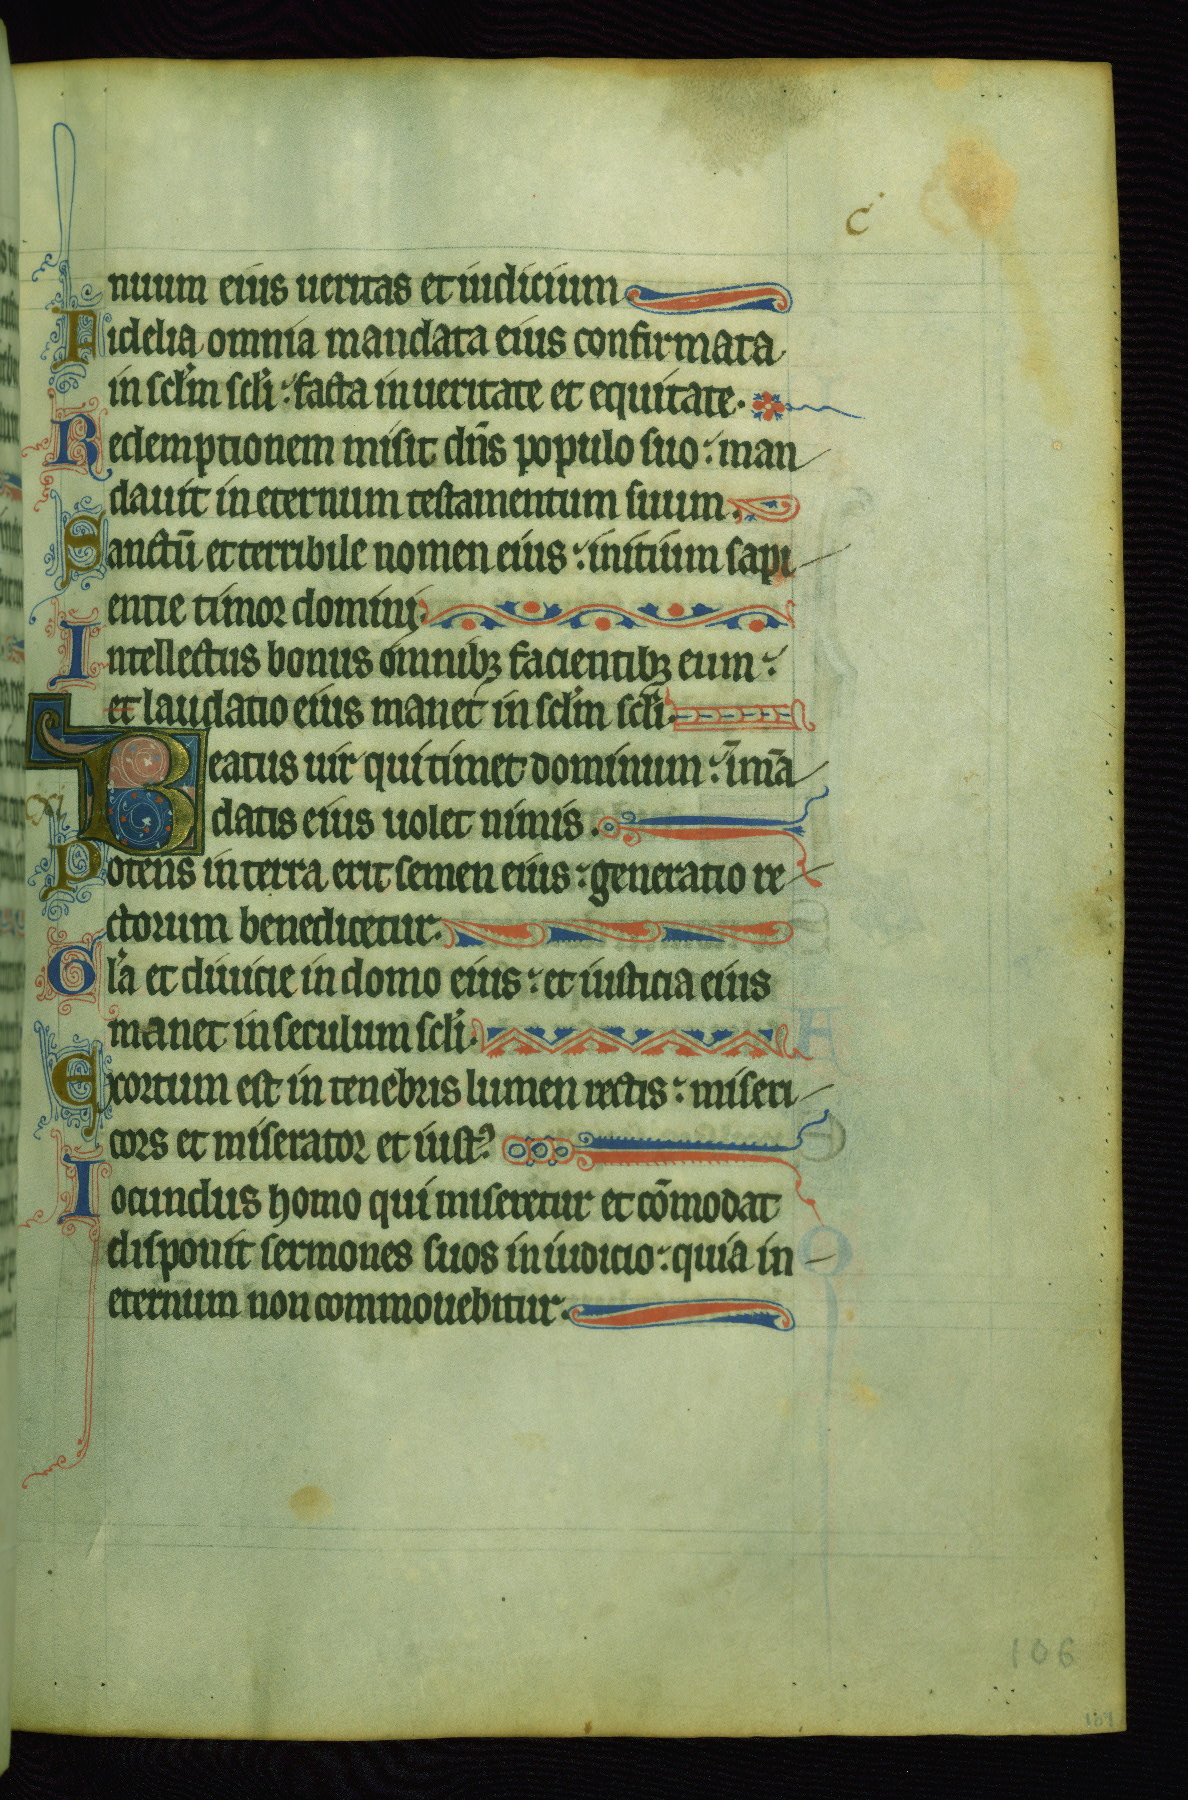 c
nuum eius ueritas et iudicium
Fidelia omnia mandata eius confirmata
in sclm scli : facta in ueritate et equitate.
Redemptionem misit dñs populo suo : man
dauit in eternum testamentum suum.
Sanctū et terribile nomen eius : initium sapi
entie timor domini.
Intellectus bonus omnibꝫ facientibꝫ eum :
et laudatio eius manet in sclm scli.
Beatus uir qui timet dominum : i mā
datis eius uolet nimis.
Potens in terra erit semen eius : generatio re
ctorum benedicetur.
Gla et diuicie in domo eius : et iusticia eius
manet in seculum scli.
Exortum est in tenebris lumen rectis : miseri
cors et miserator et iustꝰ
Iocundus homo qui miseretur et cōmodat
disponit sermones suos in iudicio : quia in
eternum non commouebitur.
106
107